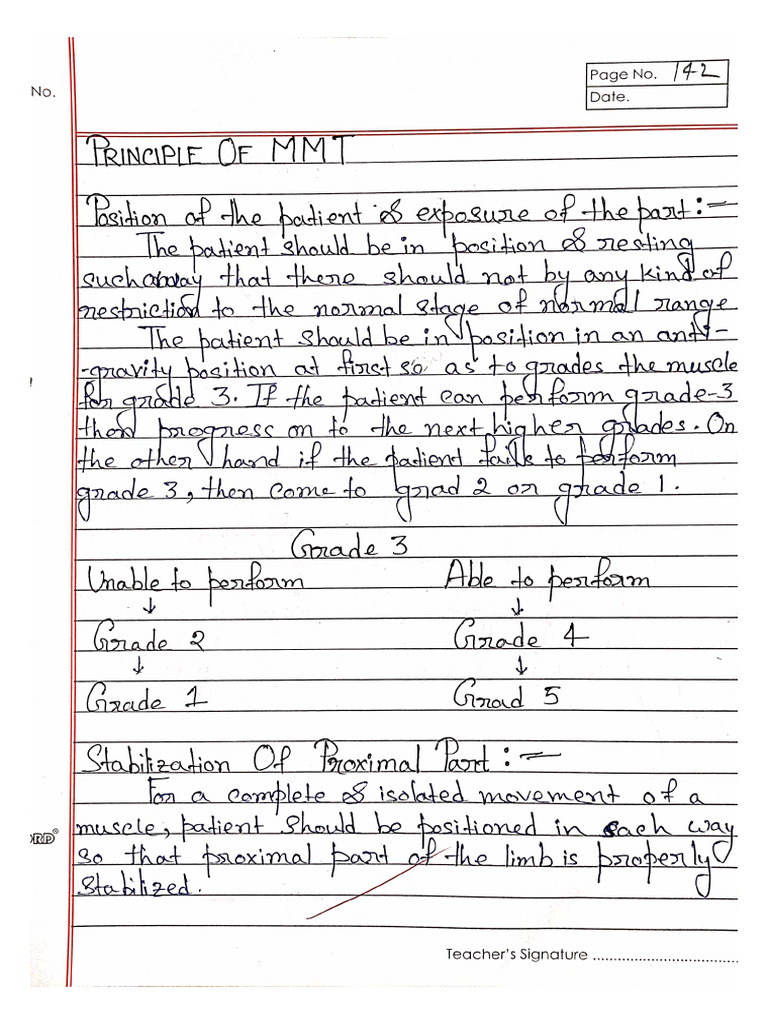 No.
Page No. 142
Date.
PRINCIPLE OF MMT
Position of the patient & exposure of the part :-
The patient should be in position & resting
such a way that there should not by any kind of
restriction to the normal stage of normal range
The patient should be in position in an anti-
-gravity position at first so as to grades the muscle
for grade 3. If the patient can perform grade-3
then progress on to the next higher grades. On
the other hand if the patient fails to perform
grade 3, then come to grad 2 or grade 1.
Grade 3
Unable to perform Able to perform
↓ ↓
Grade 2 Grade 4
↓ ↓
Grade 1 Grad 5
Stabilization Of Proximal Part :-
For a complete & isolated movement of a
muscle, patient should be positioned in each way
so that proximal part of the limb is properly
stabilized.
ORD®
Teacher's Signature ..................................